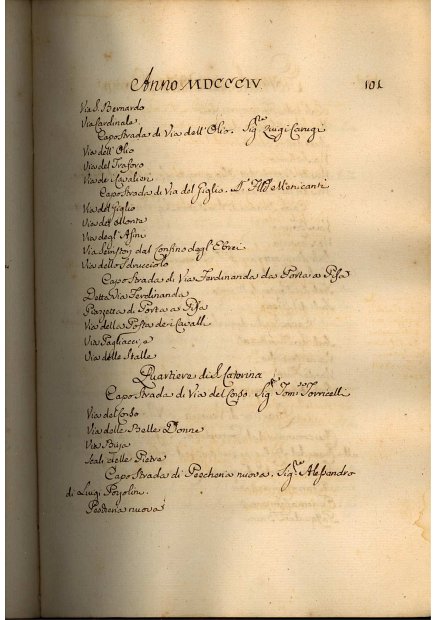 Anno MDCCCIV. 101
Via S. Bernardo
Via Cardinale
Capo Strada di Via dell'Olio. Sig.re Luigi Carugi
Via dell'Olio
Via del Traforo
Via de Cavalieri
Capo Strada di Via del Giglio.
Via del Giglio
Via del Monte
Via degl'Asini
Via dal Confino degl'Ebrei
Via dello Sdrucciolo
Capo Strada di Via Ferdinanda da Porta a Pisa
Detta Via Ferdinanda
Piazzetta di Porta a Pisa
Via della Posta dei Cavalli
Via Pagliacci, e
Via delle Stalle
Quartiere di S. Caterina
Capo Strada di Via del Corso. Sig.re Tom.o Torricelli
Via del Corso
Via delle Belle Donne
Via Buja
Scali delle Pietre
Capo Strada di Pescheria nuova. Sig.re Alessandro
di Luigi
Pescheria nuova